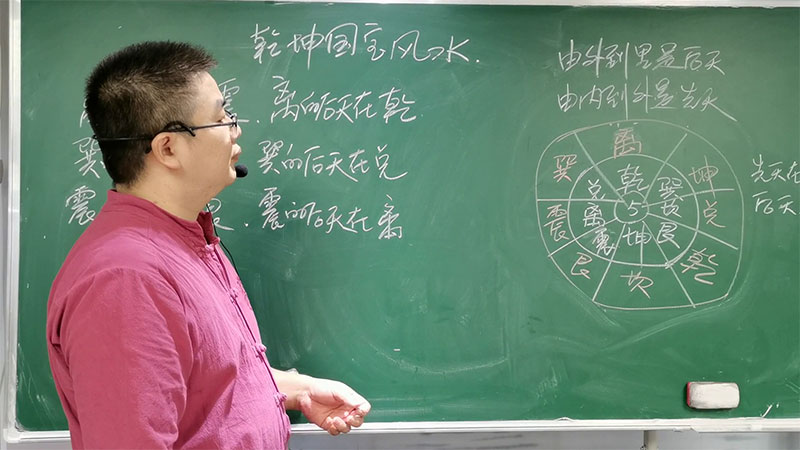 乾坤国宝风水.
震.离的后天在乾.
巽 巽的后天在兑
震 艮.震的后天在离
由外到里是后天
由内到外是先天
离
巽 坤
乾
兑 巽
震 离 5 坎 兑
震 坤 艮
艮 坎 乾
先天在
后天